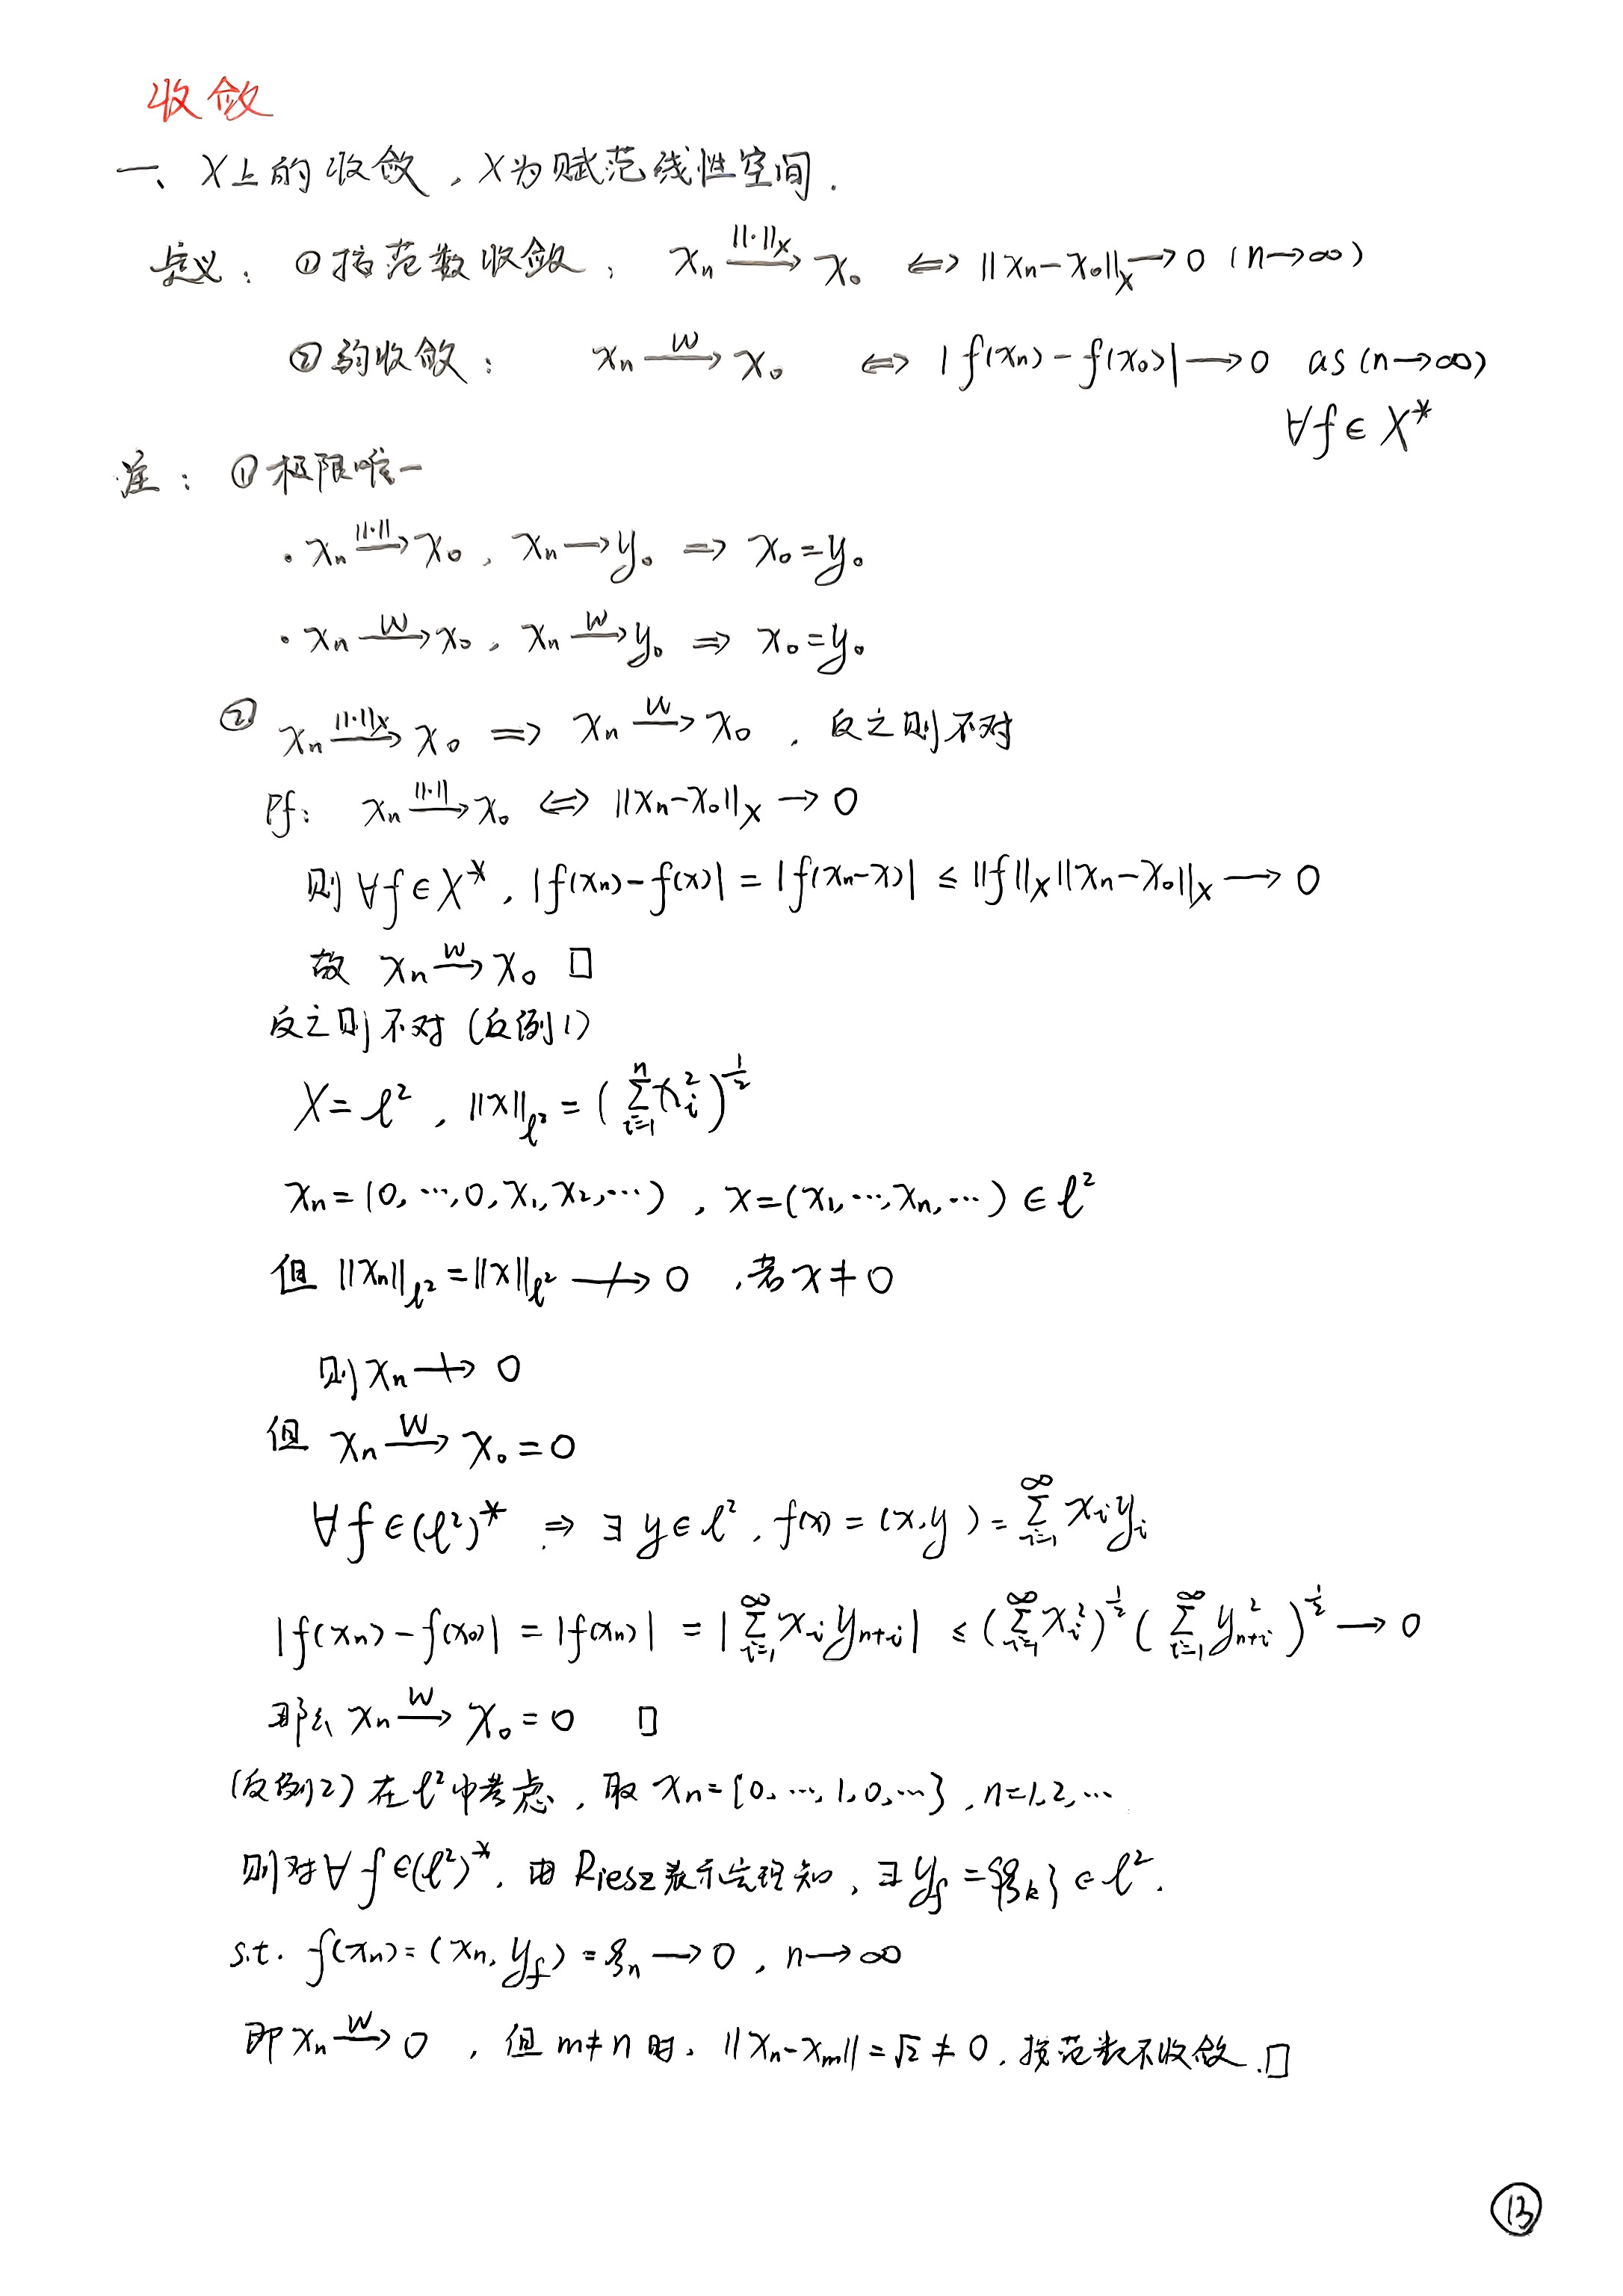 收敛
一、X上的收敛，X为赋范线性空间.
定义：①按范数收敛： xₙ —‖·‖_X→ x₀ ⇔ ‖xₙ-x₀‖_X → 0 (n→∞)
②弱收敛： xₙ —W→ x₀ ⇔ |f(xₙ)-f(x₀)| → 0 as (n→∞)
∀f∈X*
注：①极限唯一
·xₙ —‖·‖→ x₀，xₙ→y₀ ⇒ x₀=y₀
·xₙ —W→ x₀，xₙ —W→ y₀ ⇒ x₀=y₀
② xₙ —‖·‖_X→ x₀ ⇒ xₙ —W→ x₀，反之则不对
Pf: xₙ —‖·‖→ x₀ ⇔ ‖xₙ-x₀‖_X → 0
则∀f∈X*，|f(xₙ)-f(x)| = |f(xₙ-x)| ≤ ‖f‖_X‖xₙ-x₀‖_X → 0
故 xₙ —W→ x₀ □
反之则不对(反例1)
X=ℓ²，‖x‖_ℓ² = (∑_{i=1}^{n} x_i²)^{1/2}
xₙ=(0,⋯,0,x₁,x₂,⋯)，x=(x₁,⋯,xₙ,⋯)∈ℓ²
但 ‖xₙ‖_ℓ²=‖x‖_ℓ² ↛ 0，若x≠0
则 xₙ ↛ 0
但 xₙ —W→ x₀=0
∀f∈(ℓ²)* ⇒ ∃y∈ℓ²，f(x)=(x,y)=∑_{i=1}^{∞} x_i y_i
|f(xₙ)-f(x₀)| = |f(xₙ)| = |∑_{i=1}^{∞} x_i y_{n+i}| ≤ (∑_{i=1}^{∞} x_i²)^{1/2} (∑_{i=1}^{∞} y_{n+i}²)^{1/2} → 0
那么 xₙ —W→ x₀=0 □
(反例2)在ℓ²中考虑，取 xₙ={0,⋯,1,0,⋯}，n=1,2,⋯
则对∀f∈(ℓ²)*，由Riesz表示定理知，∃y_f={ξ_k}∈ℓ².
s.t. f(xₙ)=(xₙ,y_f)=ξₙ→0，n→∞
即 xₙ —W→ 0，但m≠n时，‖xₙ-x_m‖=√2≠0，按范数不收敛.□
⑬